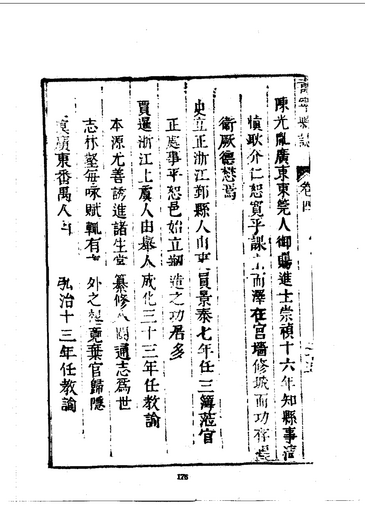 卷四
陳光胤廣東東莞人御賜進士崇禎十六年知縣事清
慎耿介仁恕寬乎課士而澤在宮墻修城而功存
衛厥德懋焉
史立正浙江鄞縣人由吏員景泰七年任三簿蒞官
正處事平恕邑始立 造之功居多
賈暹浙江上虞人由舉人成化二十三年任教諭
本源尤善誘進諸生 纂修 通志爲世
志林壑每咏賦輒有 外之 竟棄官歸隱
廣東番禺人 弘治十三年任教諭
178